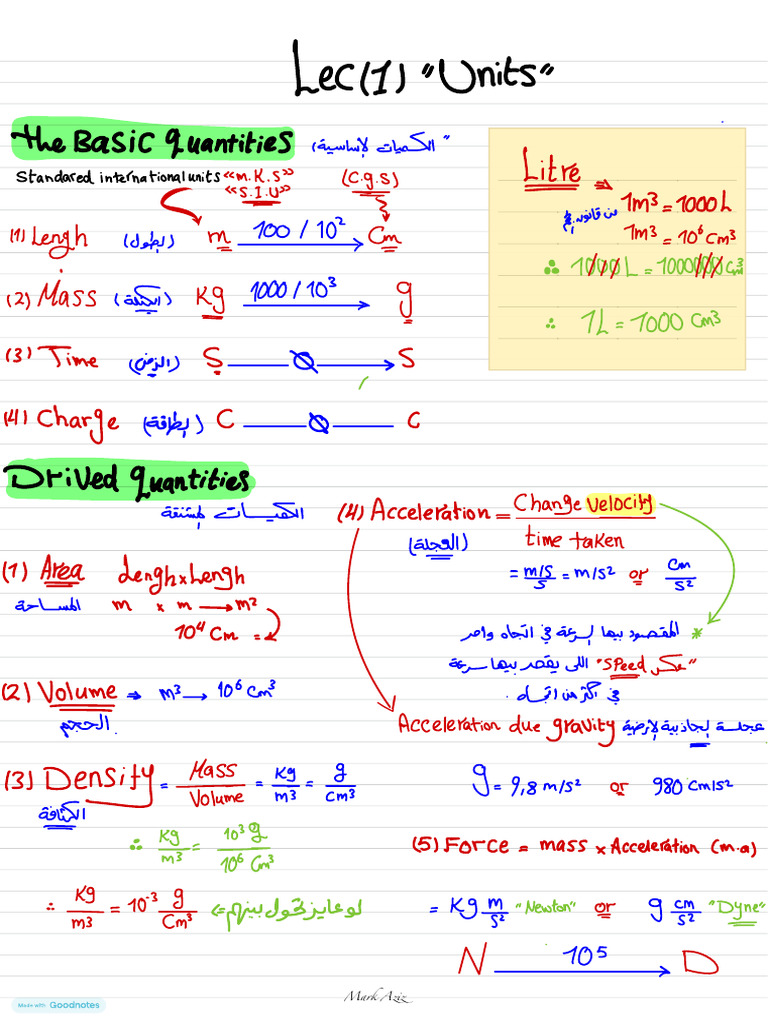 Lec(1) "Units"
the Basic quantities (الكميات الاساسية)
Standared international units «m.K.S» (C.g.S)
«S.I.U»
(1) Lengh (الطول) m 100 / 10² Cm
(2) Mass (الكتلة) Kg 1000 / 10³ g
(3) Time (الزمن) S S
(4) Charge C C
Litre
من قانون 1m3 = 1000L
1m3 = 10⁶ Cm3
∴ 1000 L = 1000000 Cm3
∴ 1L = 1000 Cm3
Drived quantities
الكميات المشتقة
(1) Area Lengh x Lengh
المساحة m x m → m²
10⁴ Cm =
(2) Volume ⇒ m3 → 10⁶ Cm3
الحجم
(3) Density = Mass / Volume = Kg / m3 = g / Cm3
الكثافة
∴ Kg / m3 = 10³ g / 10⁶ Cm3
∴ Kg / m3 = 10⁻³ g / Cm3 لو عايز تحول بينهم
(4) Acceleration = Change velocity / time taken
(العجلة)
= m/s / S = m/s² or Cm / S²
* المقصود بيها السرعة في اتجاه واحد
"عكس speed" اللى يقصد بيها سرعة
في اكثر من اتجاه
Acceleration due gravity عجلة الجاذبية الارضية
g = 9,8 m/s² or 980 cm/s²
(5) Force = mass x Acceleration (m.a)
= Kg m / S² "Newton" or g cm / S² "Dyne"
N 10⁵ D
Mark Aziz
Made with Goodnotes